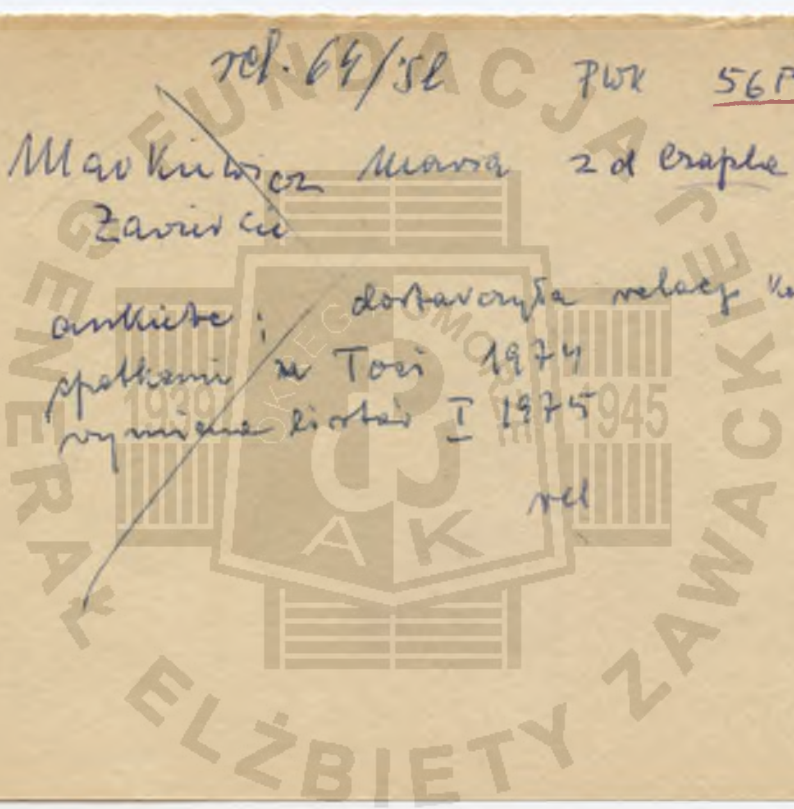 rel. 64/Śl PWK 56P
Markiewicz Maria z d Czapla
Zawiercie
ankieta; dostarczyła relacje
spotkanie w Toci 1974
wymiana listów I 1975
rel
FUNDACJA GENERAŁ ELŻBIETY ZAWACKIEJ
1939 1945
AK